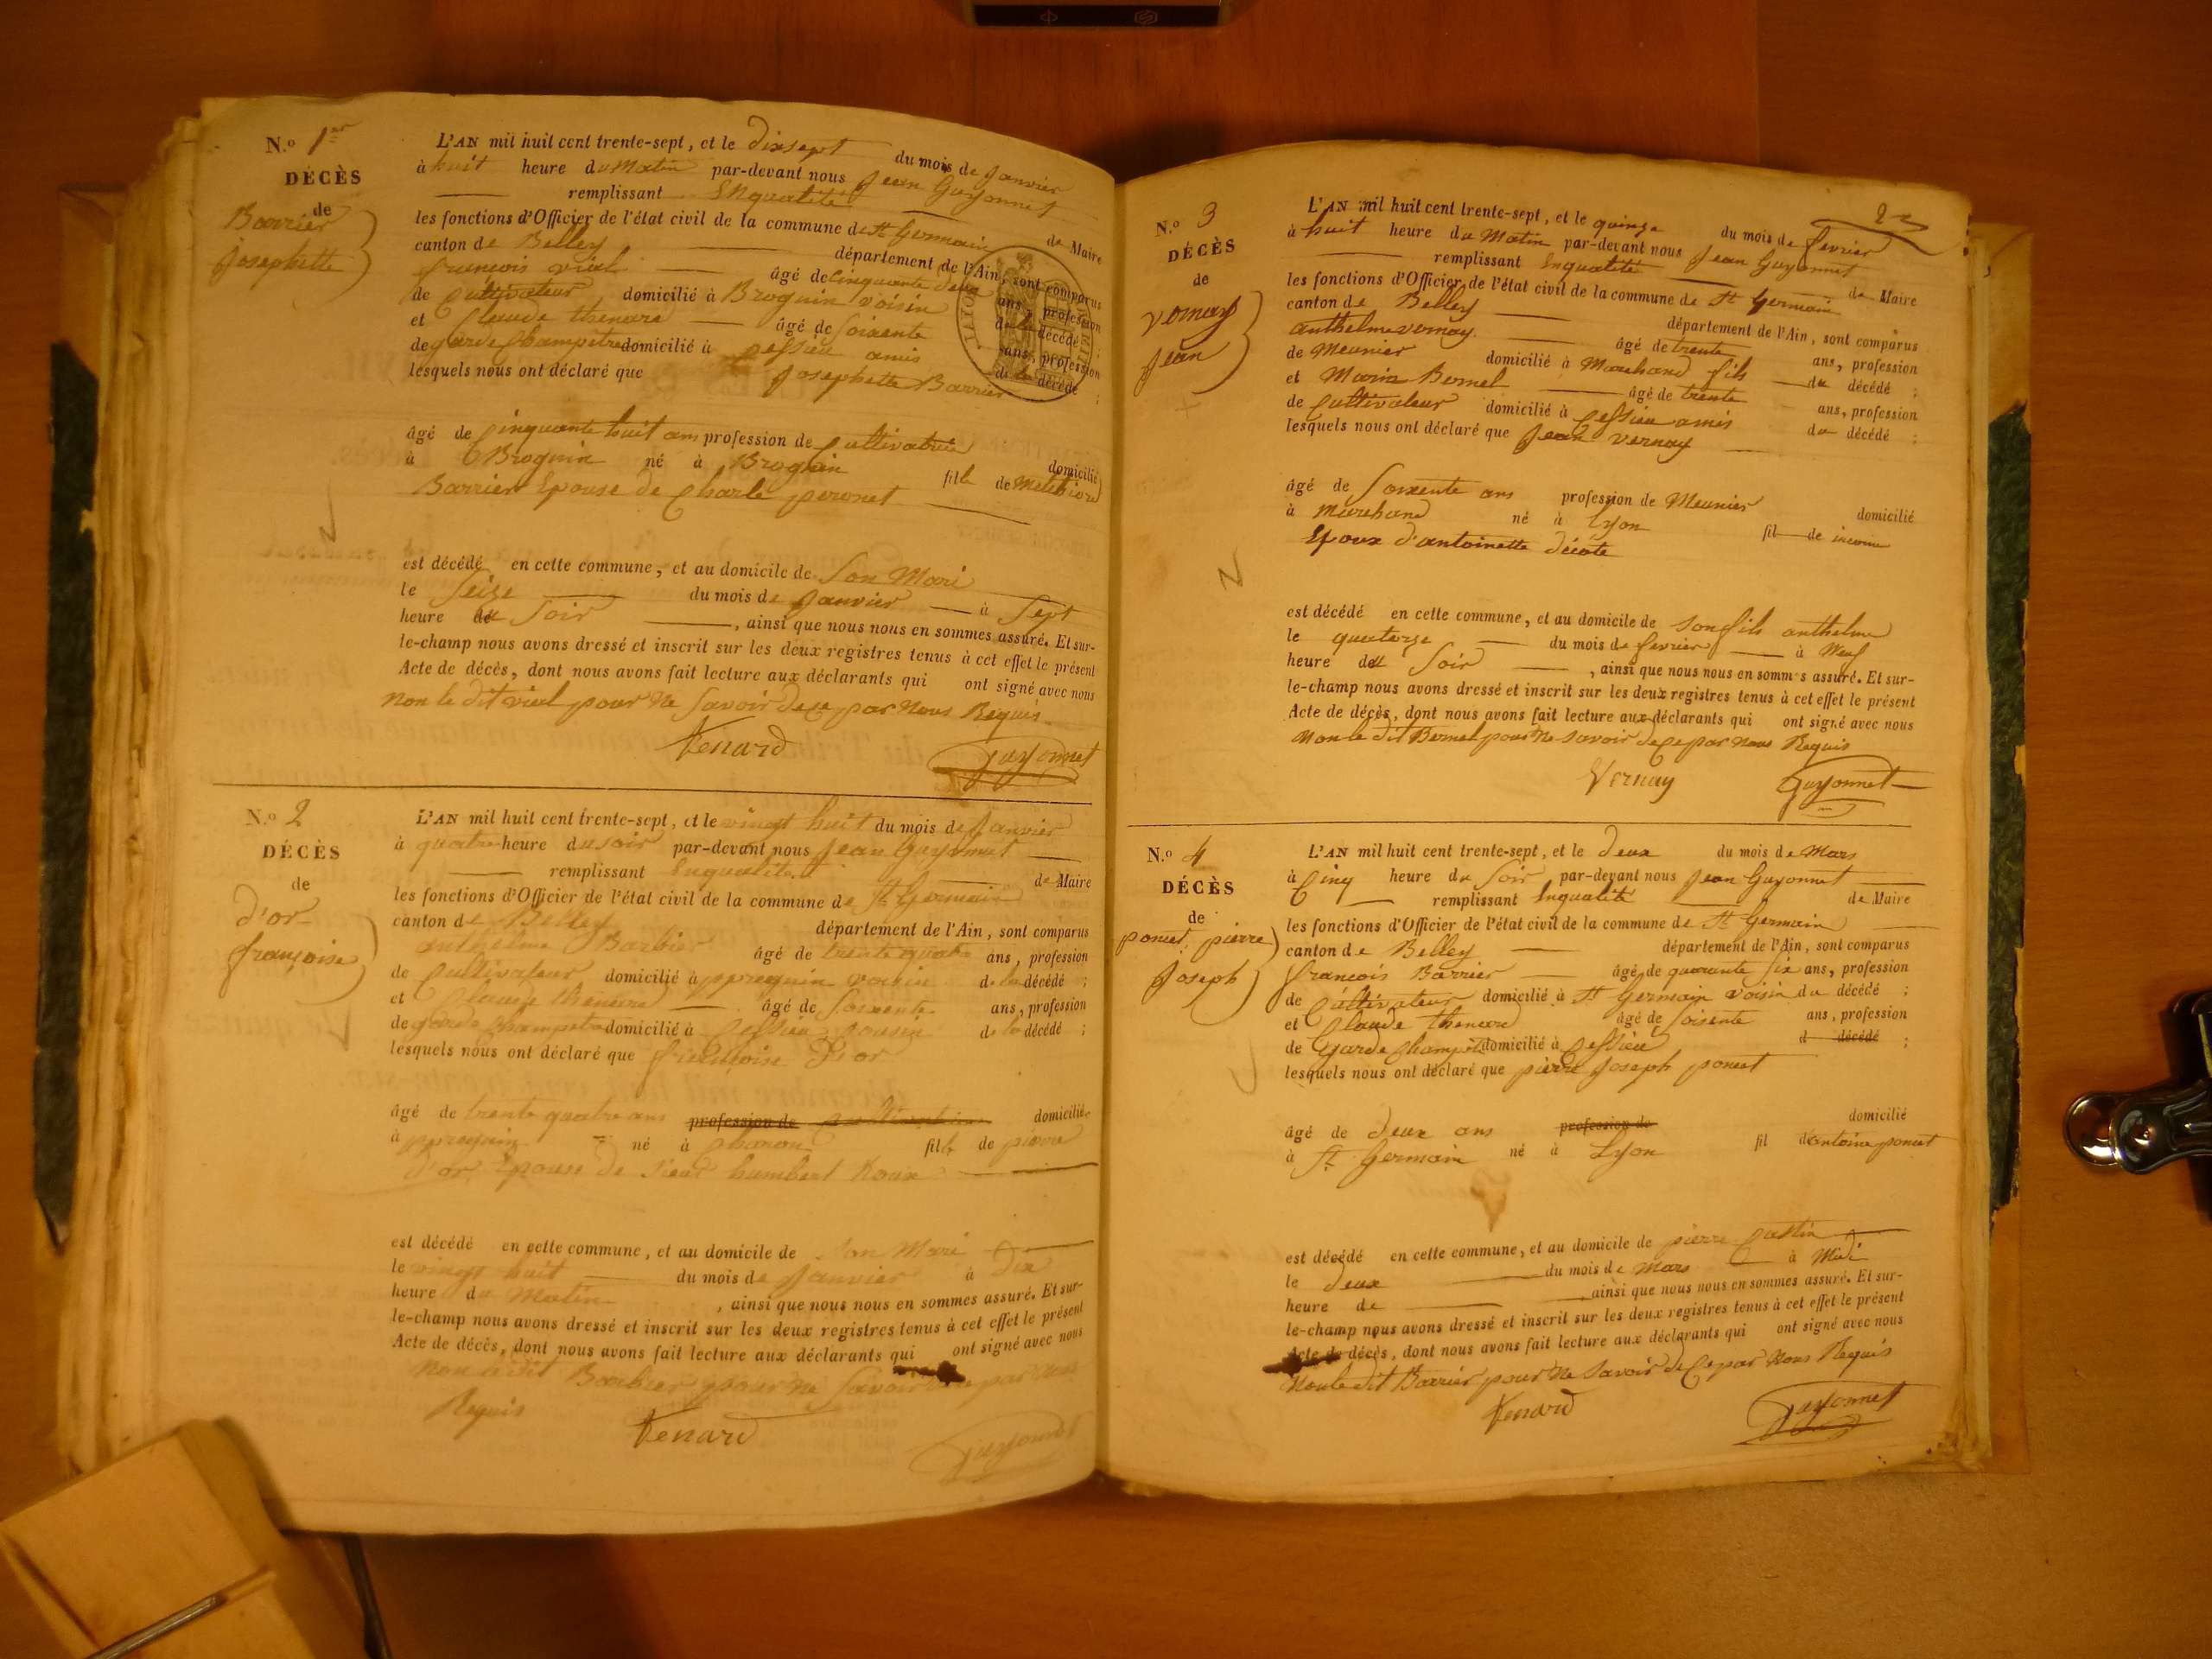 N.o 1er
DÉCÈS
de
Barrier
Josephette
L'AN mil huit cent trente-sept, et le dixsept du mois de Janvier
à huit heure du Matin par-devant nous Jean Guyonnet
remplissant Enqualité de Maire
les fonctions d'Officier de l'état civil de la commune de St Germain
canton de Belley département de l'Ain, sont comparus
francois vial âgé de cinquante deux ans, profession
de Cultivateur domicilié à Brognin voisin de la décédé ;
et Claude thenard âgé de Soixente ans, profession
de garde Champetre domicilié à Cessieu amis de la décédé ;
lesquels nous ont déclaré que Josephette Barrier
âgé de Cinquante huit ans profession de Cultivatrice domicilié
à Brognin né à Brognin fille de Melchiore
Barrier Epouse de Charle peronet
est décédé en cette commune, et au domicile de Son Mari
le Seize du mois de Janvier à Sept
heure du Soir , ainsi que nous nous en sommes assuré. Et sur-
le-champ nous avons dressé et inscrit sur les deux registres tenus à cet effet le présent
Acte de décès, dont nous avons fait lecture aux déclarants qui ont signé avec nous
Non le dit vial pour Ne Savoir de Ce par Nous Requis
tenard Guyonnet
N.o 2
DÉCÈS
de
d'or
françoise
L'AN mil huit cent trente-sept, et le vingt huit du mois de Janvier
à quatre heure du soir par-devant nous Jean Guyonnet
remplissant Enqualité de Maire
les fonctions d'Officier de l'état civil de la commune de St Germain
canton de Belley département de l'Ain, sont comparus
anthelme Barbier âgé de trente quatre ans, profession
de Cultivateur domicilié à voisin de la décédé ;
et Claude thenard âgé de Soixente ans, profession
de garde Champetre domicilié à Cessieu cousin de la décédé ;
lesquels nous ont déclaré que francoise D'or
âgé de trente quatre ans profession de domicilié
à né à fille de pierre
d'or Epouse de humbert Roux
est décédé en cette commune, et au domicile de Son Mari
le vingt huit du mois de Janvier à Dix
heure du Matin , ainsi que nous nous en sommes assuré. Et sur-
le-champ nous avons dressé et inscrit sur les deux registres tenus à cet effet le présent
Acte de décès, dont nous avons fait lecture aux déclarants qui ont signé avec nous
Non le dit Barbier pour Ne Savoir de Ce par Nous
Requis
tenard Guyonnet
2
N.o 3
DÉCÈS
de
vernay
Jean
L'AN mil huit cent trente-sept, et le quinze du mois de fevrier
à huit heure du Matin par-devant nous Jean Guyonnet
remplissant Enqualité de Maire
les fonctions d'Officier de l'état civil de la commune de St Germain
canton de Belley département de l'Ain, sont comparus
anthelme vernay âgé de trente ans, profession
de Meunier domicilié à Marchand fils du décédé ;
et Marin Bornel âgé de trente ans, profession
de Cultivateur domicilié à Cessieu amis du décédé ;
lesquels nous ont déclaré que Jean vernay
âgé de Soixente ans profession de Meunier domicilié
à Marchand né à Lyon fil de
Epoux d'antoinette
est décédé en cette commune, et au domicile de son fils anthelme
le quatorze du mois de fevrier à Neuf
heure du Soir , ainsi que nous nous en sommes assuré. Et sur-
le-champ nous avons dressé et inscrit sur les deux registres tenus à cet effet le présent
Acte de décès, dont nous avons fait lecture aux déclarants qui ont signé avec nous
Non le dit Bornel pour Ne Savoir de Ce par Nous Requis
Vernay Guyonnet
N.o 4
DÉCÈS
de
poncet pierre
Joseph
L'AN mil huit cent trente-sept, et le Deux du mois de Mars
à Cinq heure du Soir par-devant nous Jean Guyonnet
remplissant Enqualité de Maire
les fonctions d'Officier de l'état civil de la commune de St Germain
canton de Belley département de l'Ain, sont comparus
francois Barrier âgé de quarante Six ans, profession
de Cultivateur domicilié à St Germain voisin du décédé ;
et Claude thenard âgé de Soixente ans, profession
de Garde Champetre domicilié à Cessieu d décédé ;
lesquels nous ont déclaré que pierre Joseph poncet
âgé de Deux ans profession de domicilié
à St Germain né à Lyon fil d'antoine poncet
est décédé en cette commune, et au domicile de pierre
le Deux du mois de Mars à Midi
heure de , ainsi que nous nous en sommes assuré. Et sur-
le-champ nous avons dressé et inscrit sur les deux registres tenus à cet effet le présent
Acte de décès, dont nous avons fait lecture aux déclarants qui ont signé avec nous
Non le dit Barrier pour Ne Savoir de Ce par Nous Requis
tenard Guyonnet